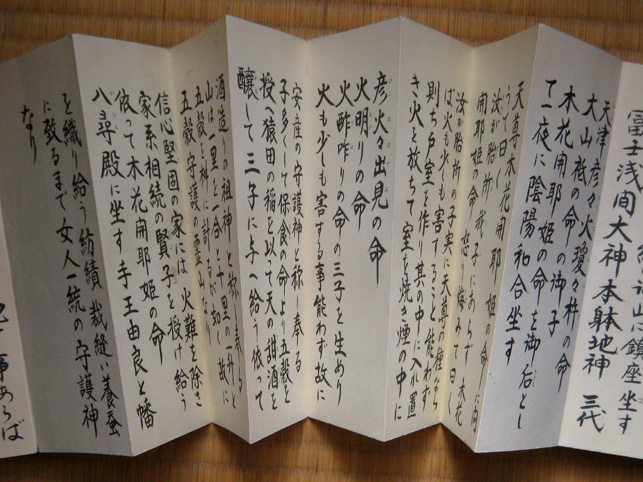 富士浅間大神本躰地神 三代
天津彦々火瓊々杵の命
大山祇の命の御子
木花開耶姫の命を御后とし
て一夜に陰陽和合坐す
天尊木花開耶姫の命に向
うて曰く
汝が胎所の子我が子にあらず 木花
開耶姫の命 怒り 曰
汝が胎所の子実に天尊の種なら
ば火も少しも害 こと能わず
則ち戸室を作り其の中に入り置
き火を放ちて室を焼き煙の中に
彦火々出見の命
火明りの命
火酢芹の命の三子を生めり
火も少しも害する事能わず故に
安産の守護神と称へ奉る
子多くして保食の命より五穀を
授へ狭田の稲を以て天の甜酒を
醸して三子に与へ給う依って
酒造りの祖神と称へ奉ると
山は一里を一合と十里の一升と
五穀を升に計るが如く故に
五穀守護の霊山なり
信心堅固の家には火難を除き
家系相続の賢子を授け給う
依って木花開耶姫の命
八尋殿に坐す手玉由良と幡
を織り給う紡績 裁縫い 養蚕
に致るまで女人一統の守護神
なり
事あらば